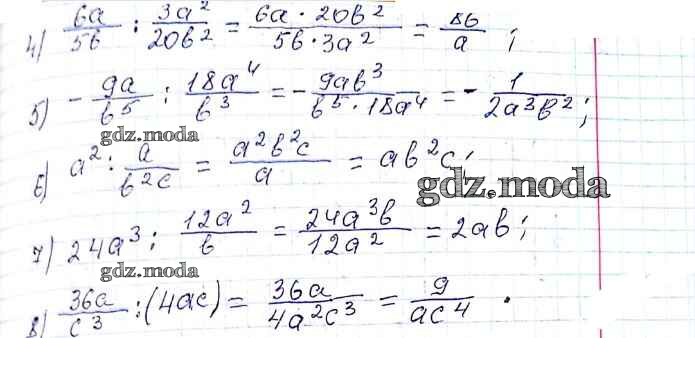 4) 6a/5b : 3a²/20b² = 6a · 20b²/5b · 3a² = 8b/a ;
5) - 9a/b⁵ : 18a⁴/b³ = - 9ab³/b⁵ · 18a⁴ = - 1/2a³b² ;
gdz.moda
6) a² : a/b²c = a²b²c/a = ab²c ;
gdz.moda
gdz.moda
7) 24a³ : 12a²/b = 24a³b/12a² = 2ab ;
gdz.moda
8) 36a/c³ : (4ac) = 36a/4a²c³ = 9/ac⁴ .